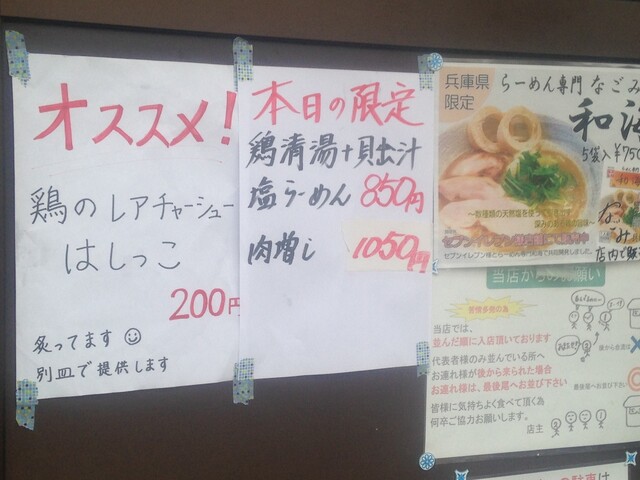 オススメ!
鶏のレアチャーシュー
はしっこ
200円
炙ってます
別皿で提供します
本日の限定
鶏清湯+貝出汁
塩らーめん 850円
肉増し 1050円
兵庫県
限定
らーめん専門 なごみ
5袋入¥750
〜数種類の天然塩を使う
セブンイレブン
店内で販
当店からのお願い
当店では、
並んだ順に入店頂いております
代表者様のみ並んでいる所へ
お連れ様が後から来られた場合
お連れ様は、最後尾へお並び下さい
皆様に気持ちよく食べて頂く為
何卒ご協力お願いします。
店主
最後尾へお並び下さい